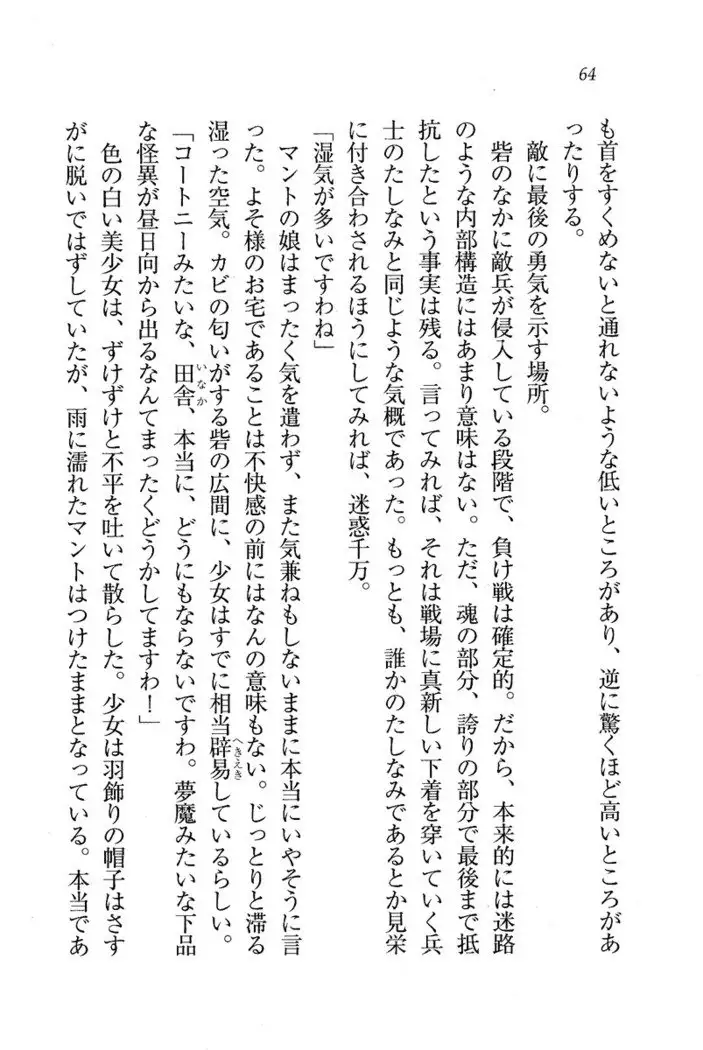 64
も首をすくめないと通れないような低いところがあり、逆に驚くほど高いところがあ
ったりする。
敵に最後の勇気を示す場所。
砦のなかに敵兵が侵入している段階で、負け戦は確定的。だから、本来的には迷路
のような内部構造にはあまり意味はない。ただ、魂の部分、誇りの部分で最後まで抵
抗したという事実は残る。言ってみれば、それは戦場に真新しい下着を穿いていく兵
士のたしなみと同じような気概であった。もっとも、誰かのたしなみであるとか見栄
に付き合わされるほうにしてみれば、迷惑千万。
「湿気が多いですわね」
マントの娘はまったく気を遣わず、また気兼ねもしないままに本当にいやそうに言
った。よそ様のお宅であることは不快感の前にはなんの意味もない。じっとりと滞る
湿った空気。カビの匂いがする砦の広間に、少女はすでに相当辟易へきえきしているらしい。
「コートニーみたいな、田舎いなか、本当に、どうにもならないですわ。夢魔みたいな下品
な怪異が昼日向から出るなんてまったくどうかしてますわ！」
色の白い美少女は、ずけずけと不平を吐いて散らした。少女は羽飾りの帽子はさす
がに脱いではずしていたが、雨に濡れたマントはつけたままとなっている。本当であ